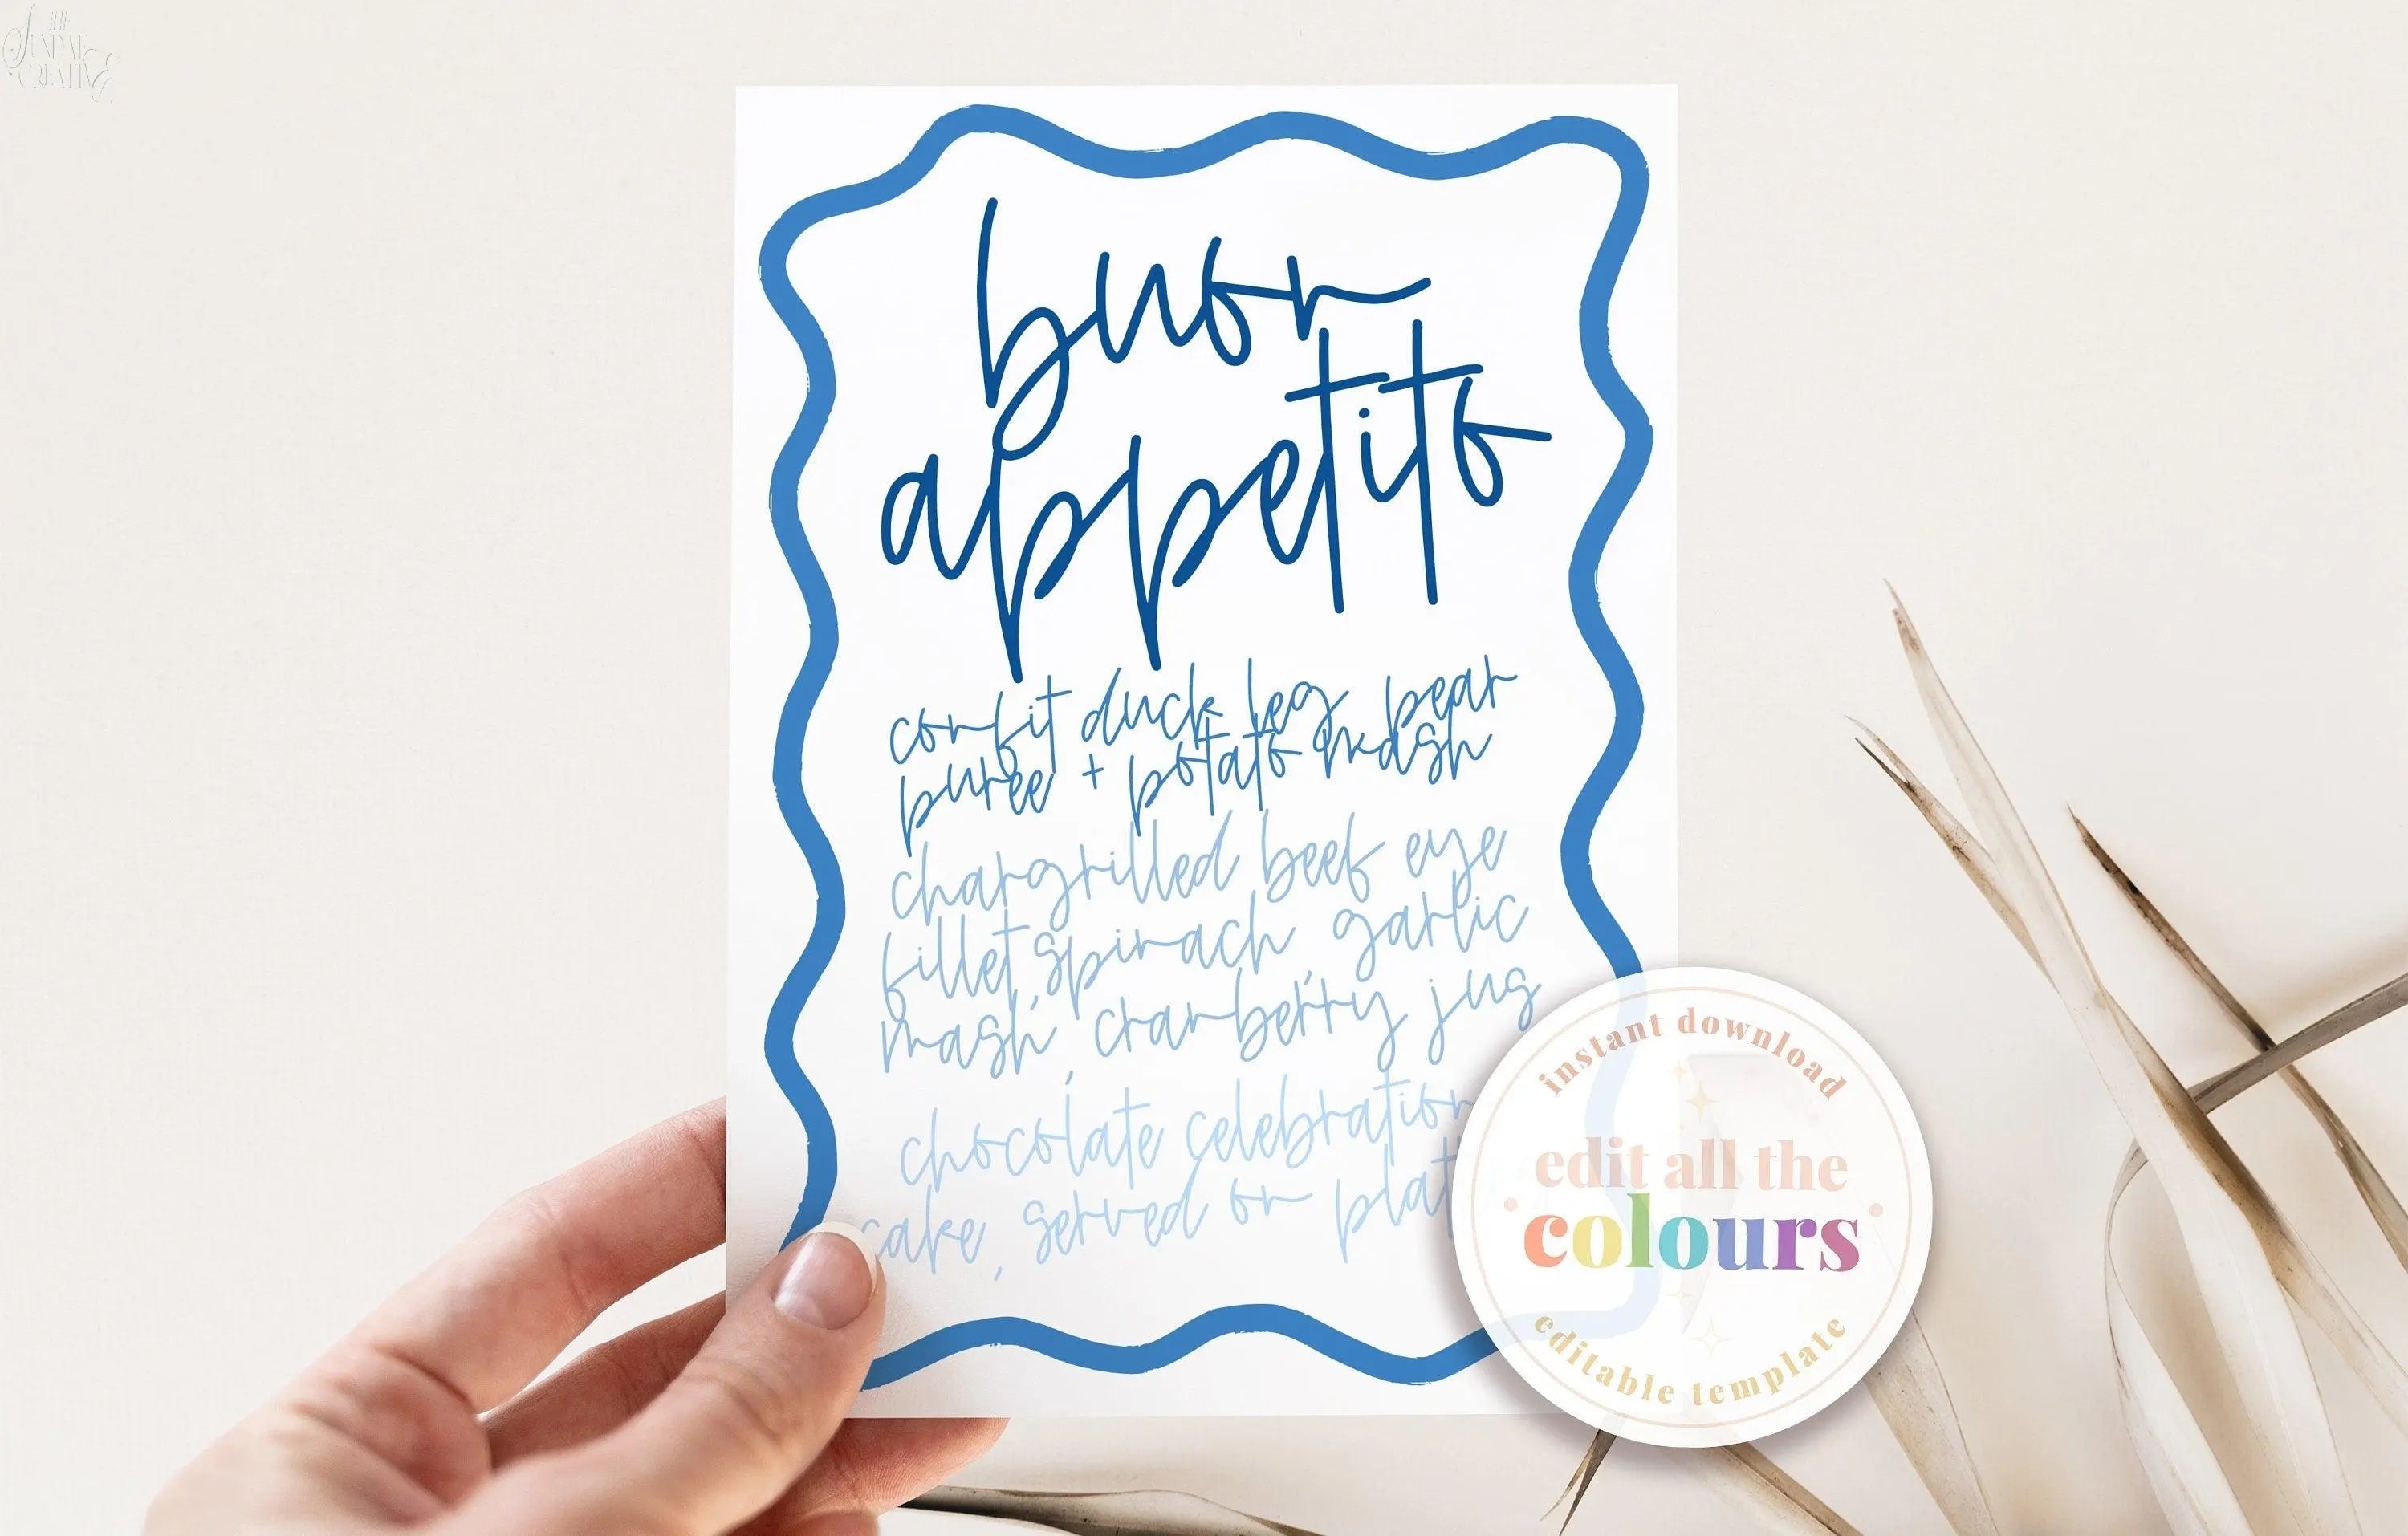 THE
SUNDAE
CREATIVE
buon
appetito
confit duck leg, pear
puree + potato mash
chargrilled beef eye
fillet, spinach, garlic
mash, cranberry jus
chocolate celebration
cake, served on
instant download
edit all the
colours
editable template